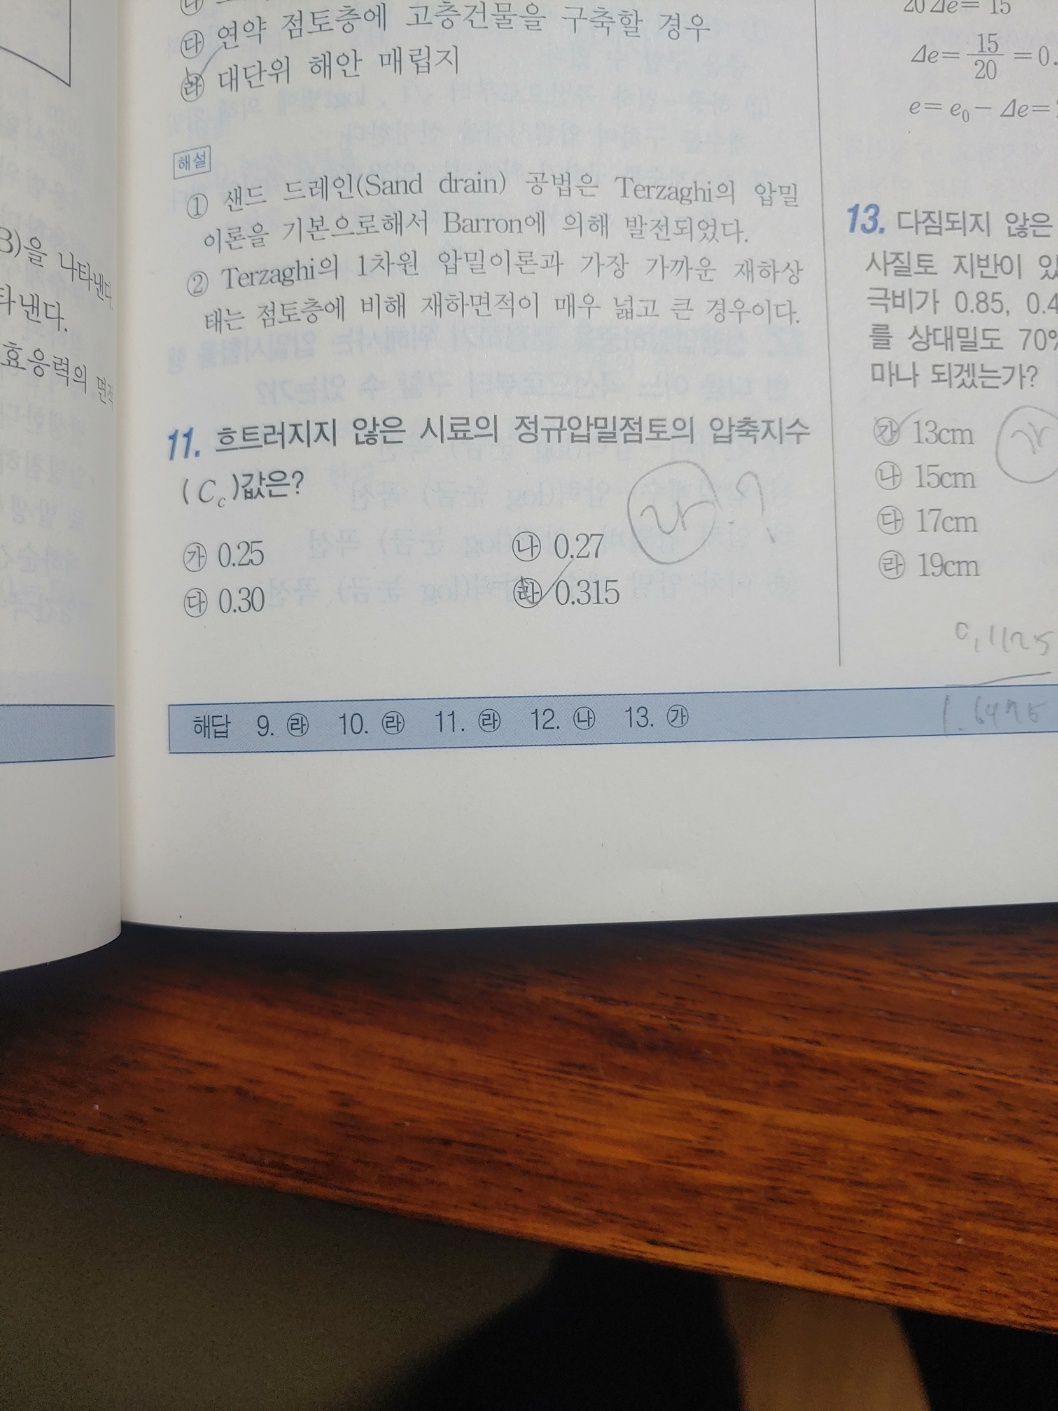 ㉰ 연약 점토층에 고층건물을 구축할 경우
㉱ 대단위 해안 매립지
해설
① 샌드 드레인(Sand drain) 공법은 Terzaghi의 압밀
이론을 기본으로해서 Barron에 의해 발전되었다.
② Terzaghi의 1차원 압밀이론과 가장 가까운 재하상
태는 점토층에 비해 재하면적이 매우 넓고 큰 경우이다.
11. 흐트러지지 않은 시료의 정규압밀점토의 압축지수
(Cc)값은?
㉮ 0.25
㉯ 0.27
㉰ 0.30
㉱ 0.315
B)을 나타낸다
타낸다.
효응력의 면적
20Δe= 15
Δe= 15/20 =0.
e= e₀- Δe=
13. 다짐되지 않은
사질토 지반이 있
극비가 0.85, 0.4
를 상대밀도 70%
마나 되겠는가?
㉮ 13cm
㉯ 15cm
㉰ 17cm
㉱ 19cm
해답 9. ㉱ 10. ㉱ 11. ㉱ 12. ㉯ 13. ㉮